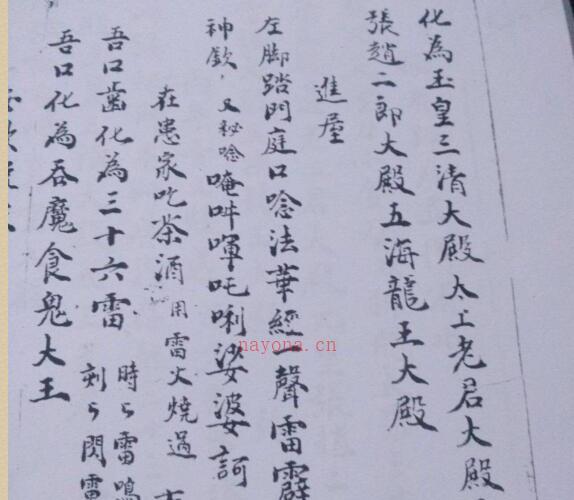 化為玉皇三清大殿太上老君大殿
張趙二郎大殿五海龍王大殿
進屋
左脚踏門庭口唸法華經一聲雷霹
神欽，又秘唸唵吽㖇吒唎娑婆訶
在患家吃茶酒用雷火燒過
吾口齒化為三十六雷
時々雷鳴
刻々閃雷
吾口化為吞魔食鬼大王
nayona.cn